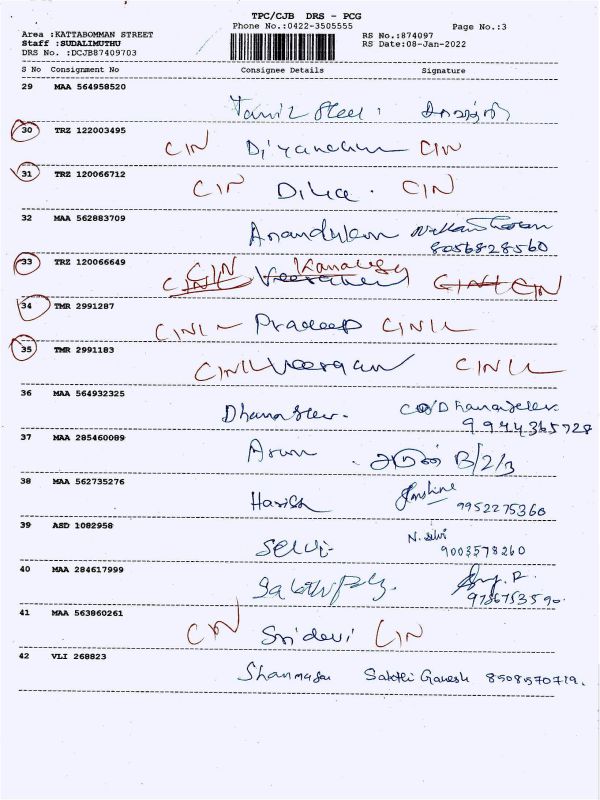 TPC/CJB DRS - PCG
Phone No.:0422-3505555 Page No.:3
Area :KATTABOMMAN STREET RS No.:874097
Staff :SUDALIMUTHU RS Date:08-Jan-2022
DRS No. :DCJB87409703
S No Consignment No Consignee Details Signature
29 MAA 564958520
Tamil Steel
30 TRZ 122003495
CIN CIN
31 TRZ 120066712
CIN CIN
32 MAA 562883709
8056828560
33 TRZ 120066649
CIN CIN
34 TMR 2991287
CINL Pradeep CINL
35 TMR 2991183
CINL CINL
36 MAA 564932325
37 MAA 285460089
Arun அருண் B/2/3
38 MAA 562735276
Harish
9952275360
39 ASD 1082958
Selvi N. Selvi
9003578260
40 MAA 284617999
41 MAA 563860261
CIN Sridevi CIN
42 VLI 268823
Sakthi Ganesh 8508570719.